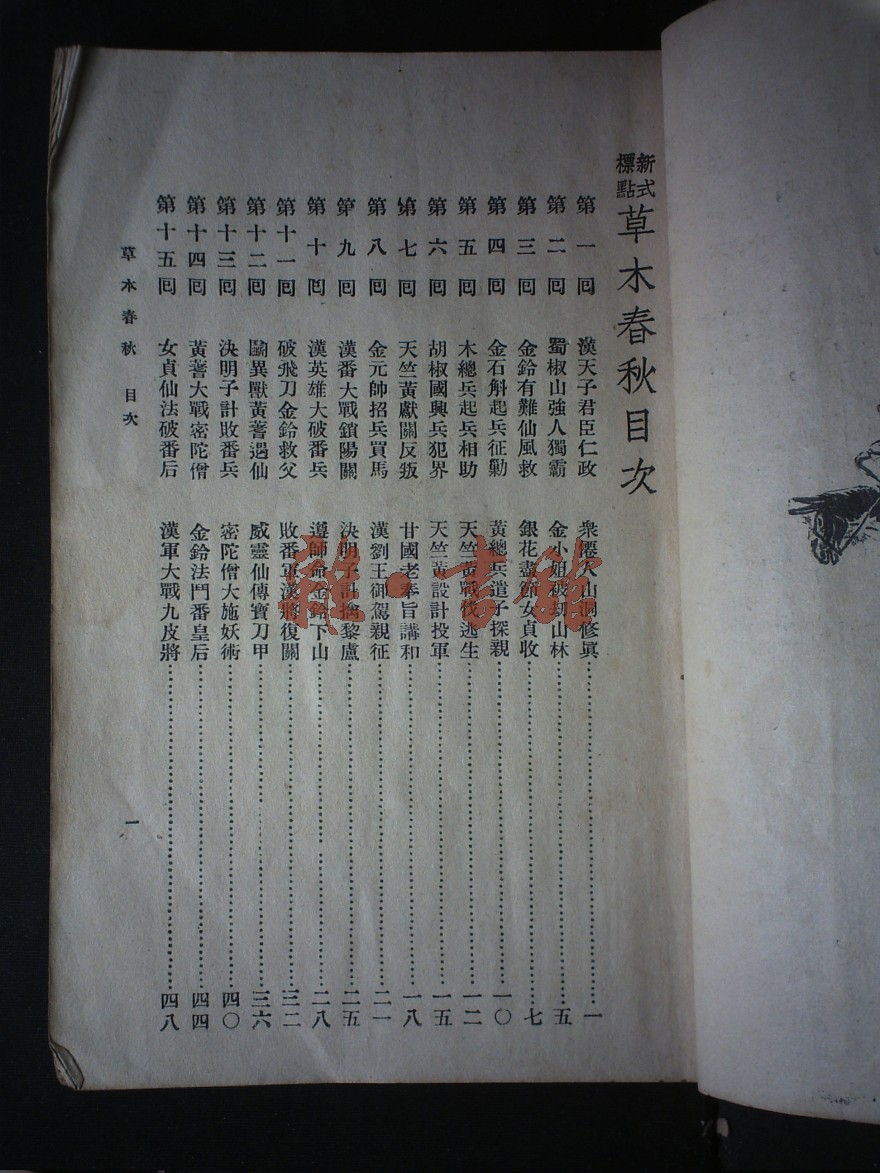 新式標點 草木春秋目次
第一回 漢天子君臣仁政 衆僊入山洞修眞 一
第二回 蜀椒山強人獨霸 金小姐被刼山林 五
第三回 金鈴有難仙風救 銀花盡節女貞收 七
第四回 金石斛起兵征勦 黃總兵遣子探親 一〇
第五回 木總兵起兵相助 天竺黃戰伐逃生 一二
第六回 胡椒國興兵犯界 天竺黃設計投軍 一五
第七回 天竺黃獻關反叛 甘國老奉旨講和 一八
第八回 金元帥招兵買馬 漢劉王御駕親征 二一
第九回 漢番大戰鎖陽關 決明子計擒黎盧 二五
第十回 漢英雄大破番兵 遵師命金鈴下山 二八
第十一回 破飛刀金鈴救父 敗番軍漢將復關 三二
第十二回 鬭異獸黃蓍遇仙 威靈仙傳寶刀甲 三六
第十三回 決明子計敗番兵 密陀僧大施妖術 四〇
第十四回 黃蓍大戰密陀僧 金鈴法鬥番皇后 四四
第十五回 女貞仙法破番后 漢軍大戰九皮將 四八
草木春秋 目次
一
龍·書館